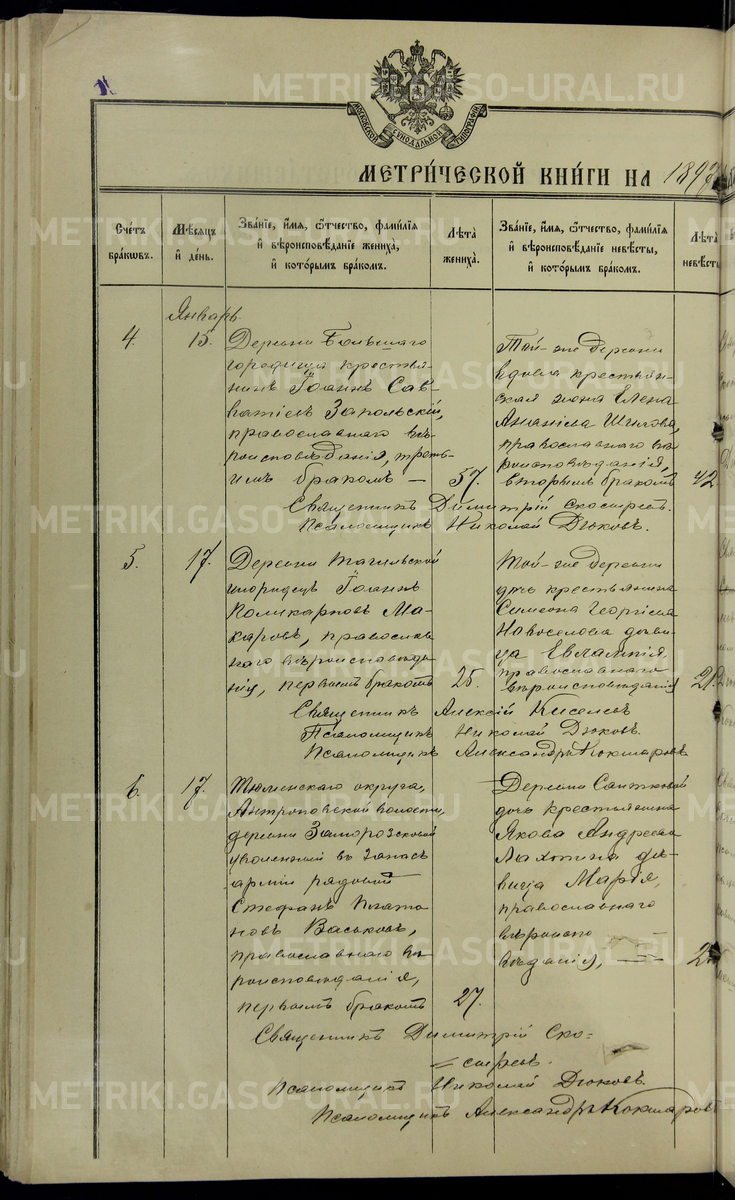 МОСКОВСКОЙ СѴНОДАЛЬНОЙ ТИПОГРАФІИ
МЕТРИ́ЧЕСКОЙ КНИ́ГИ НА 189
Сче́тъ бра́кѡвъ.
Мѣ́сяцъ и҆ де́нь.
Зва́нїе, и҆́мя, ѻ҆́тчество, фами́лїя и҆ вѣроисповѣ́данїе жениха̀, и҆ кото́рымъ бра́комъ.
Лѣ́та жениха̀.
Зва́нїе, и҆́мя, ѻ҆́тчество, фами́лїя и҆ вѣроисповѣ́данїе невѣ́сты, и҆ кото́рымъ бра́комъ.
Лѣ́та невѣ́сты
Январь
4.
15.
Деревни Большаго
городища крестья-
нинъ Іоаннъ Сав-
ватіевъ Запольскій,
православнаго вѣ-
роисповѣданія, треть-
имъ бракомъ —
57.
Той-же деревни
вдова крестьян-
ская жена Елена
Ананіева Шилова,
православнаго вѣ-
роисповѣданія,
вторымъ бракомъ
42.
Священникъ Димитрій Скосыревъ.
Псаломщикъ Николай Дюковъ.
5.
17.
Деревни Тагильской
инородецъ Іоаннъ
Поликарповъ Ма-
каровъ, православ
наго вѣроисповѣда-
нія, первымъ бракомъ
25.
Той-же деревни
дочь крестьянина
Симеона Георгіева
Новоселова дѣви-
ца Евлампія
православнаго
вѣроисповѣданія
21.
Священникъ Алексій Киселевъ
Псаломщикъ Николай Дюковъ.
Псаломщикъ Александръ Кокшаровъ
6.
17.
Тюменскаго округа,
Антроповской волости,
деревни Заморозковой
уволенный въ запасъ
арміи рядовой
Стефанъ Плато
новъ Васьковъ,
православнаго вѣ-
роисповѣданія,
первымъ бракомъ
27.
Деревни
дочь крестьянина
Якова Андреева
Лахтина дѣ-
вица Марія,
православнаго
вѣроиспо
вѣданія, —
Священникъ Димитрій Ско-
= сыревъ.
Псаломщикъ Николай Дюковъ
Псаломщикъ Александръ Кокшаровъ
METRIKI.GASO-URAL.RU